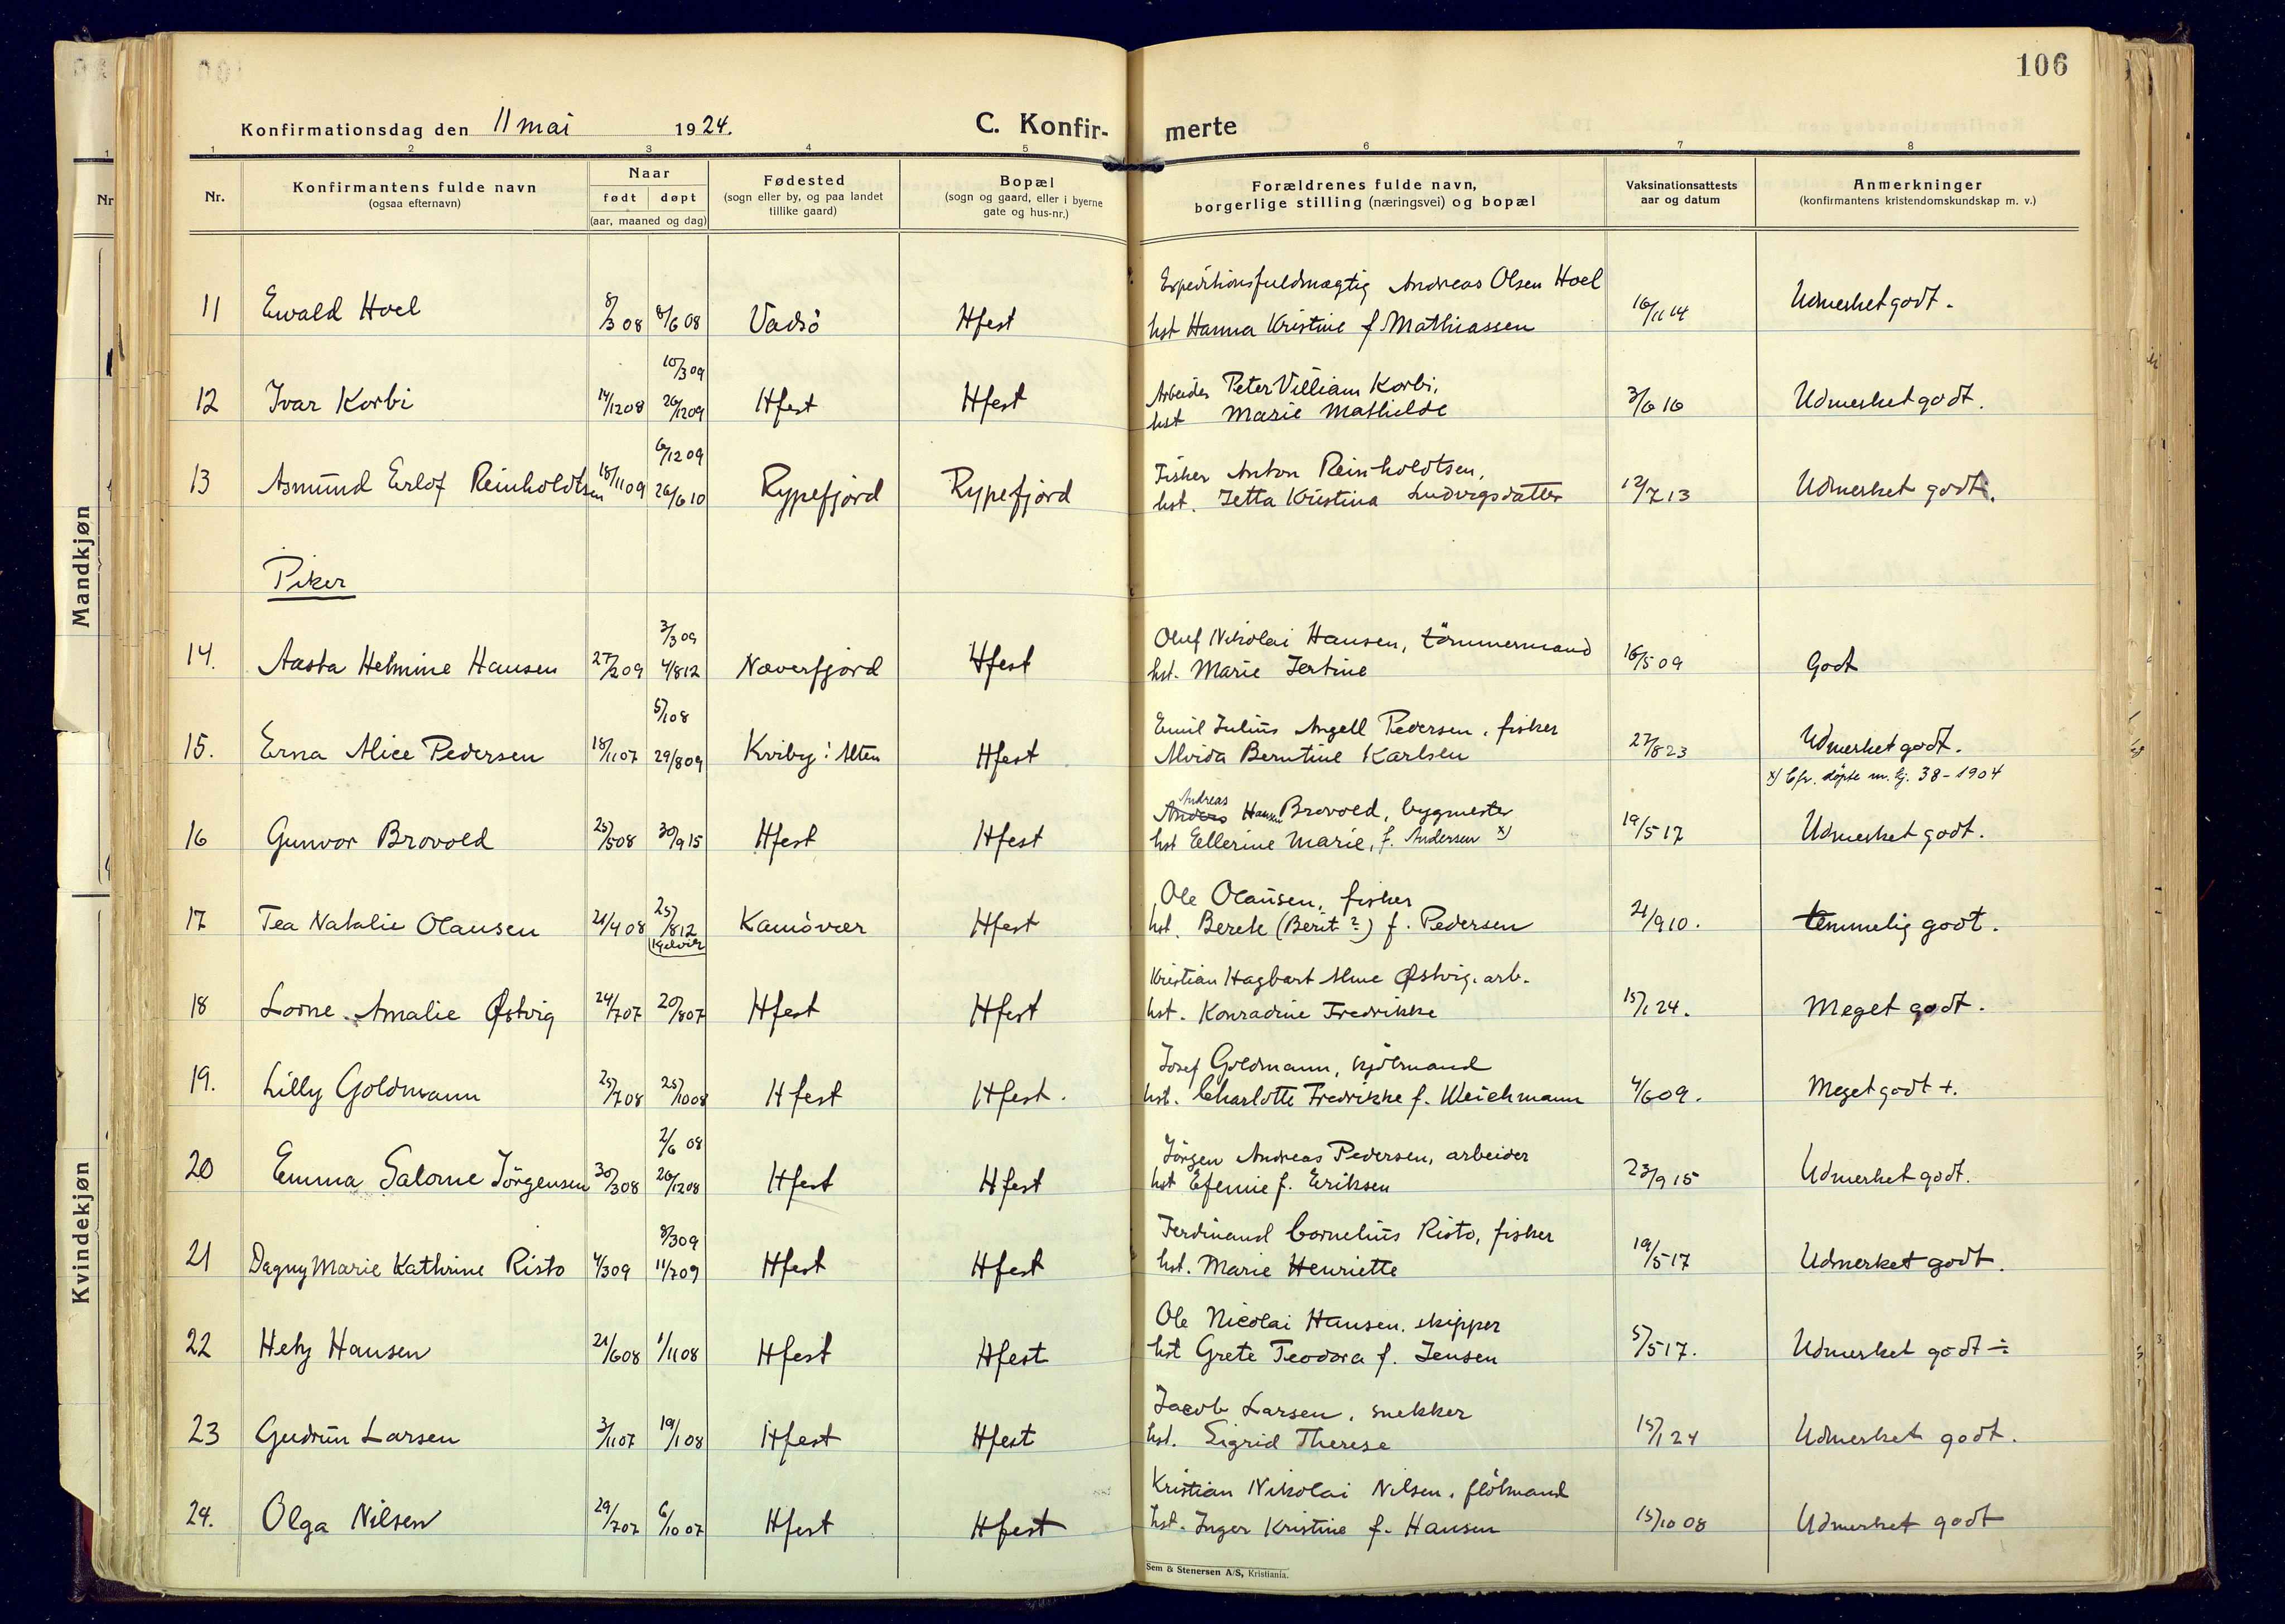 106
Konfirmationsdag den 11 mai 1924.
C. Konfir-
merte
1 2 3 4 5 6 7 8
Nr.
Konfirmantens fulde navn
(ogsaa efternavn)
Naar
født døpt
(aar, maaned og dag)
Fødested
(sogn eller by, og paa landet
tillike gaard)
Bopæl
(sogn og gaard, eller i byerne
gate og hus-nr.)
Forældrenes fulde navn,
borgerlige stilling (næringsvei) og bopæl
Vaksinationsattests
aar og datum
Anmerkninger
(konfirmantens kristendomskundskap m. v.)
Nr
Mandkjøn
Kvindekjøn
Expeditionsfuldmægtig Andreas Olsen Hoel
11 Ewald Hoel 8/3 08 8/6 08 Vadsö Hfest hst Hanna Kristine f. Mathiassen 16/11 14 Udmerket godt.
10/3 09 Arbeider Peter Villiam Korbi,
12 Ivar Korbi 14/12 08 26/12 09 Hfest Hfest hst Marie Mathilde 3/6 16 Udmerket godt.
6/12 09 Fisker Anton Reinholdtsen,
13 Asmund Erlof Reinholdtsen 18/11 09 26/6 10 Rypefjord Rypefjord hst. Jetta Kristina Ludvigsdatter 12/7 13 Udmerket godt.
Piker
3/3 09 Oluf Nikolai Hansen, tömmermand
14. Aasta Helmine Hansen 27/2 09 4/8 12 Næverfjord Hfest hst. Marie Jertine 16/5 09 Godt
5/1 08 Emil Julius Angell Pedersen, fisker
15. Erna Alice Pedersen 18/11 07 29/8 09 Kviby i Alten Hfest Alvida Berntine Karlsen 27/8 23 Udmerket godt.
x) Cfr. döpte m. kj. 38 - 1904
Andreas
Anders Hansen Brovold, bygmester
16 Gunvor Brovold 25/5 08 30/9 15 Hfest Hfest hst Ellerine Marie, f. Andersen x) 19/5 17 Udmerket godt.
Ole Olausen, fisker
17 Tea Natalie Olausen 21/4 08 25/8 12 Kamövær Hfest hst. Berete (Berit?) f. Pedersen 21/9 10. temmelig godt.
Kjelvik
Kristian Hagbart Alme Østvig, arb.
18 Lorne Amalie Østvig 24/7 07 20/8 07 Hfest Hfest hst. Konradine Fredrikke 15/1 24. Meget godt.
Josef Goldmann, kjöbmand
19. Lilly Goldmann 25/7 08 25/10 08 Hfest Hfest. hst. Charlotte Fredrikke f. Weichmann 4/6 09. Meget godt +.
2/6 08 Jörgen Andreas Pedersen, arbeider
20 Emma Salome Jörgensen 30/3 08 26/12 08 Hfest Hfest hst Efemie f. Eriksen 23/9 15 Udmerket godt.
8/3 09 Ferdinand Cornelius Risto, fisker
21 Dagny Marie Kathrine Risto 4/3 09 11/7 09 Hfest Hfest hst. Marie Henriette 19/5 17 Udmerket godt.
Ole Nicolai Hansen, skipper
22 Hety Hansen 21/6 08 1/11 08 Hfest Hfest hst Grete Teodora f. Jensen 5/5 17. Udmerket godt ÷
Jacob Larsen, snekker
23 Gudrun Larsen 3/11 07 19/1 08 Hfest Hfest hst. Sigrid Therese 15/1 24 Udmerket godt.
Kristian Nikolai Nilsen, flötmand
24. Olga Nilsen 29/7 07 6/10 07 Hfest Hfest hst. Inger Kristine f. Hansen 15/10 08 Udmerket godt
Sem & Stenersen A/S, Kristiania.